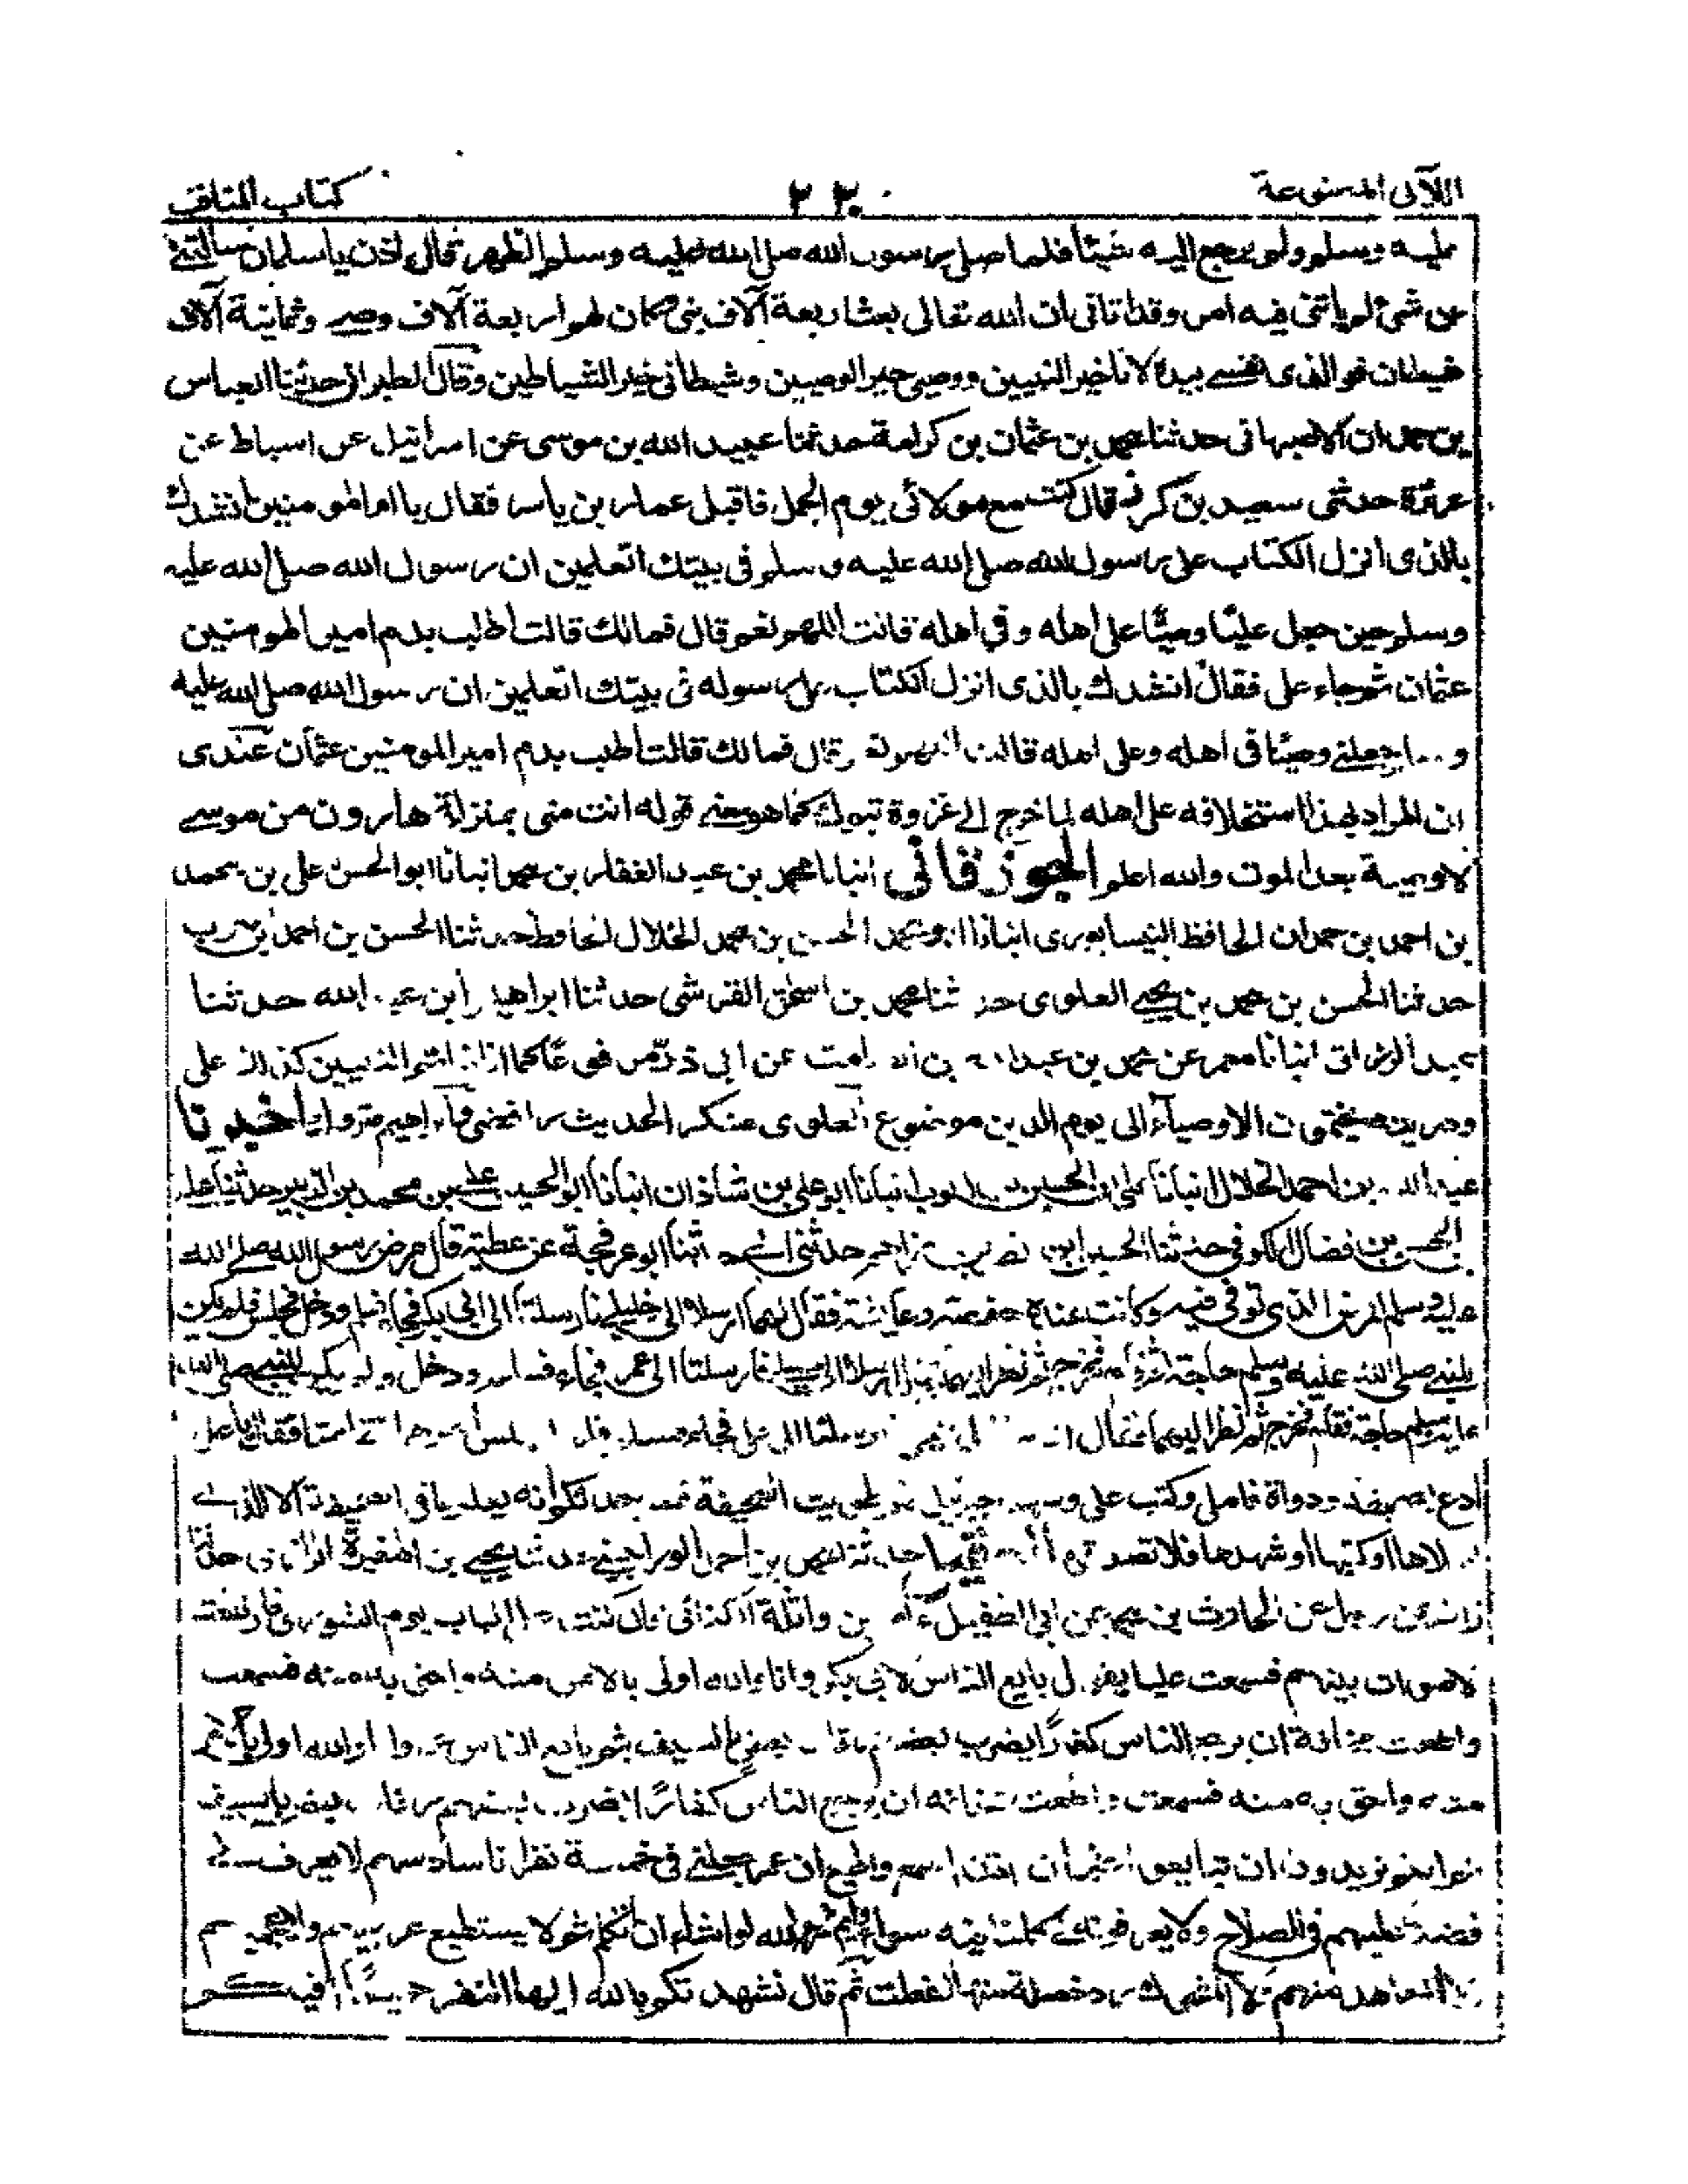 اللآلى المصنوعة
كتاب المناقب
عليه وسلم ولم يرجع اليه شيئا فلما صلى رسول الله صلى الله عليه وسلم الظهر قال ادن يا سلمان سألتنى
عن شئ لم يأتنى فيه امر وقد اتانى ان الله تعالى بعث اربعة آلاف نبى كان لهم اربعة آلاف وصى وثمانية آلاف
فوالذى نفسى بيده لانا خير النبيين ووصيى خير الوصيين وقال الطبرانى حدثنا العباس
بن حمدان الاصبهانى حدثنا محمد بن عثمان بن كرامة حدثنا عبيد الله بن موسى عن اسرائيل عن اسباط عن
عزرة حدثنى سعيد بن كرز قال كنت مع مولائى يوم الجمل فاقبل عمار بن ياسر فقال يا ام المومنين انشدك
بالذى انزل الكتاب على رسول الله صلى الله عليه وسلم فى بيتك اتعلمين ان رسول الله صلى الله عليه
وسلم حين جعل عليًّا وصيًّا على اهله وفى اهله قالت اللهم نعم قال فمالك قالت اطلب بدم امير المومنين
عثمان ثم جاء على فقال انشدك بالذى انزل الكتاب على رسوله فى بيتك اتعلمين ان رسول الله صلى الله عليه
جعلنى وصيًّا فى اهله وعلى اهله قالت اللهم نعم قال فمالك قالت اطلب بدم امير المومنين عثمان عندى
ان المراد بهذا استخلافه على اهله لما خرج الى غزوة تبوك كما هو معنى قوله انت منى بمنزلة هارون من موسى
لا وصية بعد الموت والله اعلم الجوزقانى انبانا محمد بن عبد الغفار بن محمد انبانا ابو الحسن على بن محمد
بن احمد بن حمدان الحافظ النيسابورى انبانا ابو محمد الحسن بن محمد الخلال الحافظ حدثنا الحسن بن احمد بن حرب
حدثنا الحسن بن محمد بن يحيى العلوى حدثنا محمد بن اسحق القرشى حدثنا ابراهيم ابن عبد الله حدثنا
عبد الرزاق انبانا معمر عن محمد بن عبد الله بن الصامت عن ابى ذر مرفوعًا كما انا خاتم النبيين كذلك على
وذريته يختمون الاوصياء الى يوم الدين موضوع العلوى منكر الحديث رافضى وابراهيم متروك اخبرنا
بن احمد الخلال انبانا على بن الحسين بن ايوب انبانا ابو على بن شاذان انبانا ابو الحسين على بن محمد بن الزبير حدثنا على
الحسن بن فضال الكوفى حدثنا الحسين ابن نصر بن مزاحم حدثنى ابى حدثنا ابو عرفجة عن عطية قال مرض رسول الله صلى الله
عليه وسلم المرض الذى توفى فيه وكانت عنده حفصة وعايشة فقال لهما ارسلا الى خليلى فارسلتا الى ابى بكر فجاء فسلم ودخل فجلس فلم يكن
للنبى صلى الله عليه وسلم حاجة فقام فخرج ثم نظر اليهما فقال ارسلا الى خليلى فارسلتا الى عمر فجاء فسلم ودخل ولم يكن للنبى صلى الله
عليه وسلم حاجة فقام فخرج ثم نظر اليهما فقال فارسلتا الى على فجاء فسلم
ادع بصحيفة ودواة فاملى وكتب على وشهد جبرئيل ثم طويت الصحيفة فمن حدثكم انه يعلم ما فى الصحيفة الا الذى
املاها او كتبها او شهدها فلا تصدقوه حدثنا محمد بن احمد الورامينى حدثنا يحيى بن المغيرة الرازى حدثنا
زافر عن رجل عن الحارث بن محمد عن ابى الطفيل عامر بن واثلة الكنانى قال كنت على الباب يوم الشورى فارتفعت
الاصوات بينهم فسمعت عليا يقول بايع الناس لابى بكر وانا والله اولى بالامر منه واحق به منه فسمعت
واطعت مخافة ان يرجع الناس كفارًا يضرب بعضهم رقاب بعض بالسيف ثم بايع الناس عمر وانا والله اولى بالامر
منه واحق به منه فسمعت واطعت مخافة ان يرجع الناس كفارًا يضرب بعضهم رقاب بعض بالسيف
ثم انتم تريدون ان تبايعوا عثمان اذن اسمع واطيع ان عمر جعلنى فى خمسة نفر انا سادسهم لا يعرف لى
فضلا عليهم فى الصلاح ولا يعرفونه لى كلنا فيه سواء وايم الله لو اشاء ان اتكلم ثم لا يستطيع عربيهم ولا عجميهم
ولا المعاهد منهم ولا المشرك رد خصلة منها لفعلت ثم قال نشدتكم بالله ايها النفر جميعًا افيكم